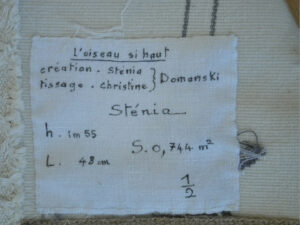 L'oiseau si haut
création. Sténia } Domanski
tissage. Christine
Sténia
h. 1m55
S. 0,744 m²
L. 48 cm
1/2